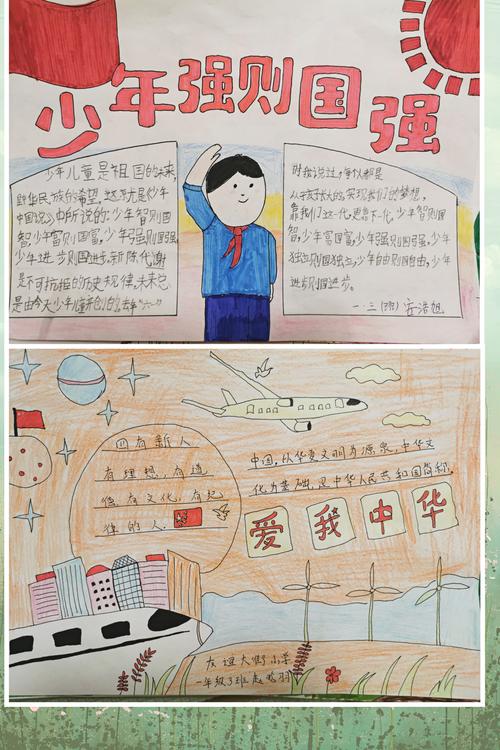 少年强则国强
少年儿童是祖国的未来,
是中华民族的希望。这就是《少年
中国说》中所说的:少年智则国
智,少年富则国富,少年强则国强,
少年进步则国进步。新陈代谢
是不可抗拒的历史规律,未来总
是由今天少年儿童开创的。
时我说过:每个人都是
从孩子长大的,实现我们的梦想,
靠我们这一代,更靠下一代。少年智则国
智,少年富国富,少年强则国强,少年
独立则国独立,少年自由则国自由,少年
进步则国进步。
一·三(班)
四有新人
有理想,有道
德有文化,有纪
律的人。
中国,以华夏文明为源泉,中华文
化为基础,是中华人民共和国简称,
爱我中华
友谊大街小学
一年级3班